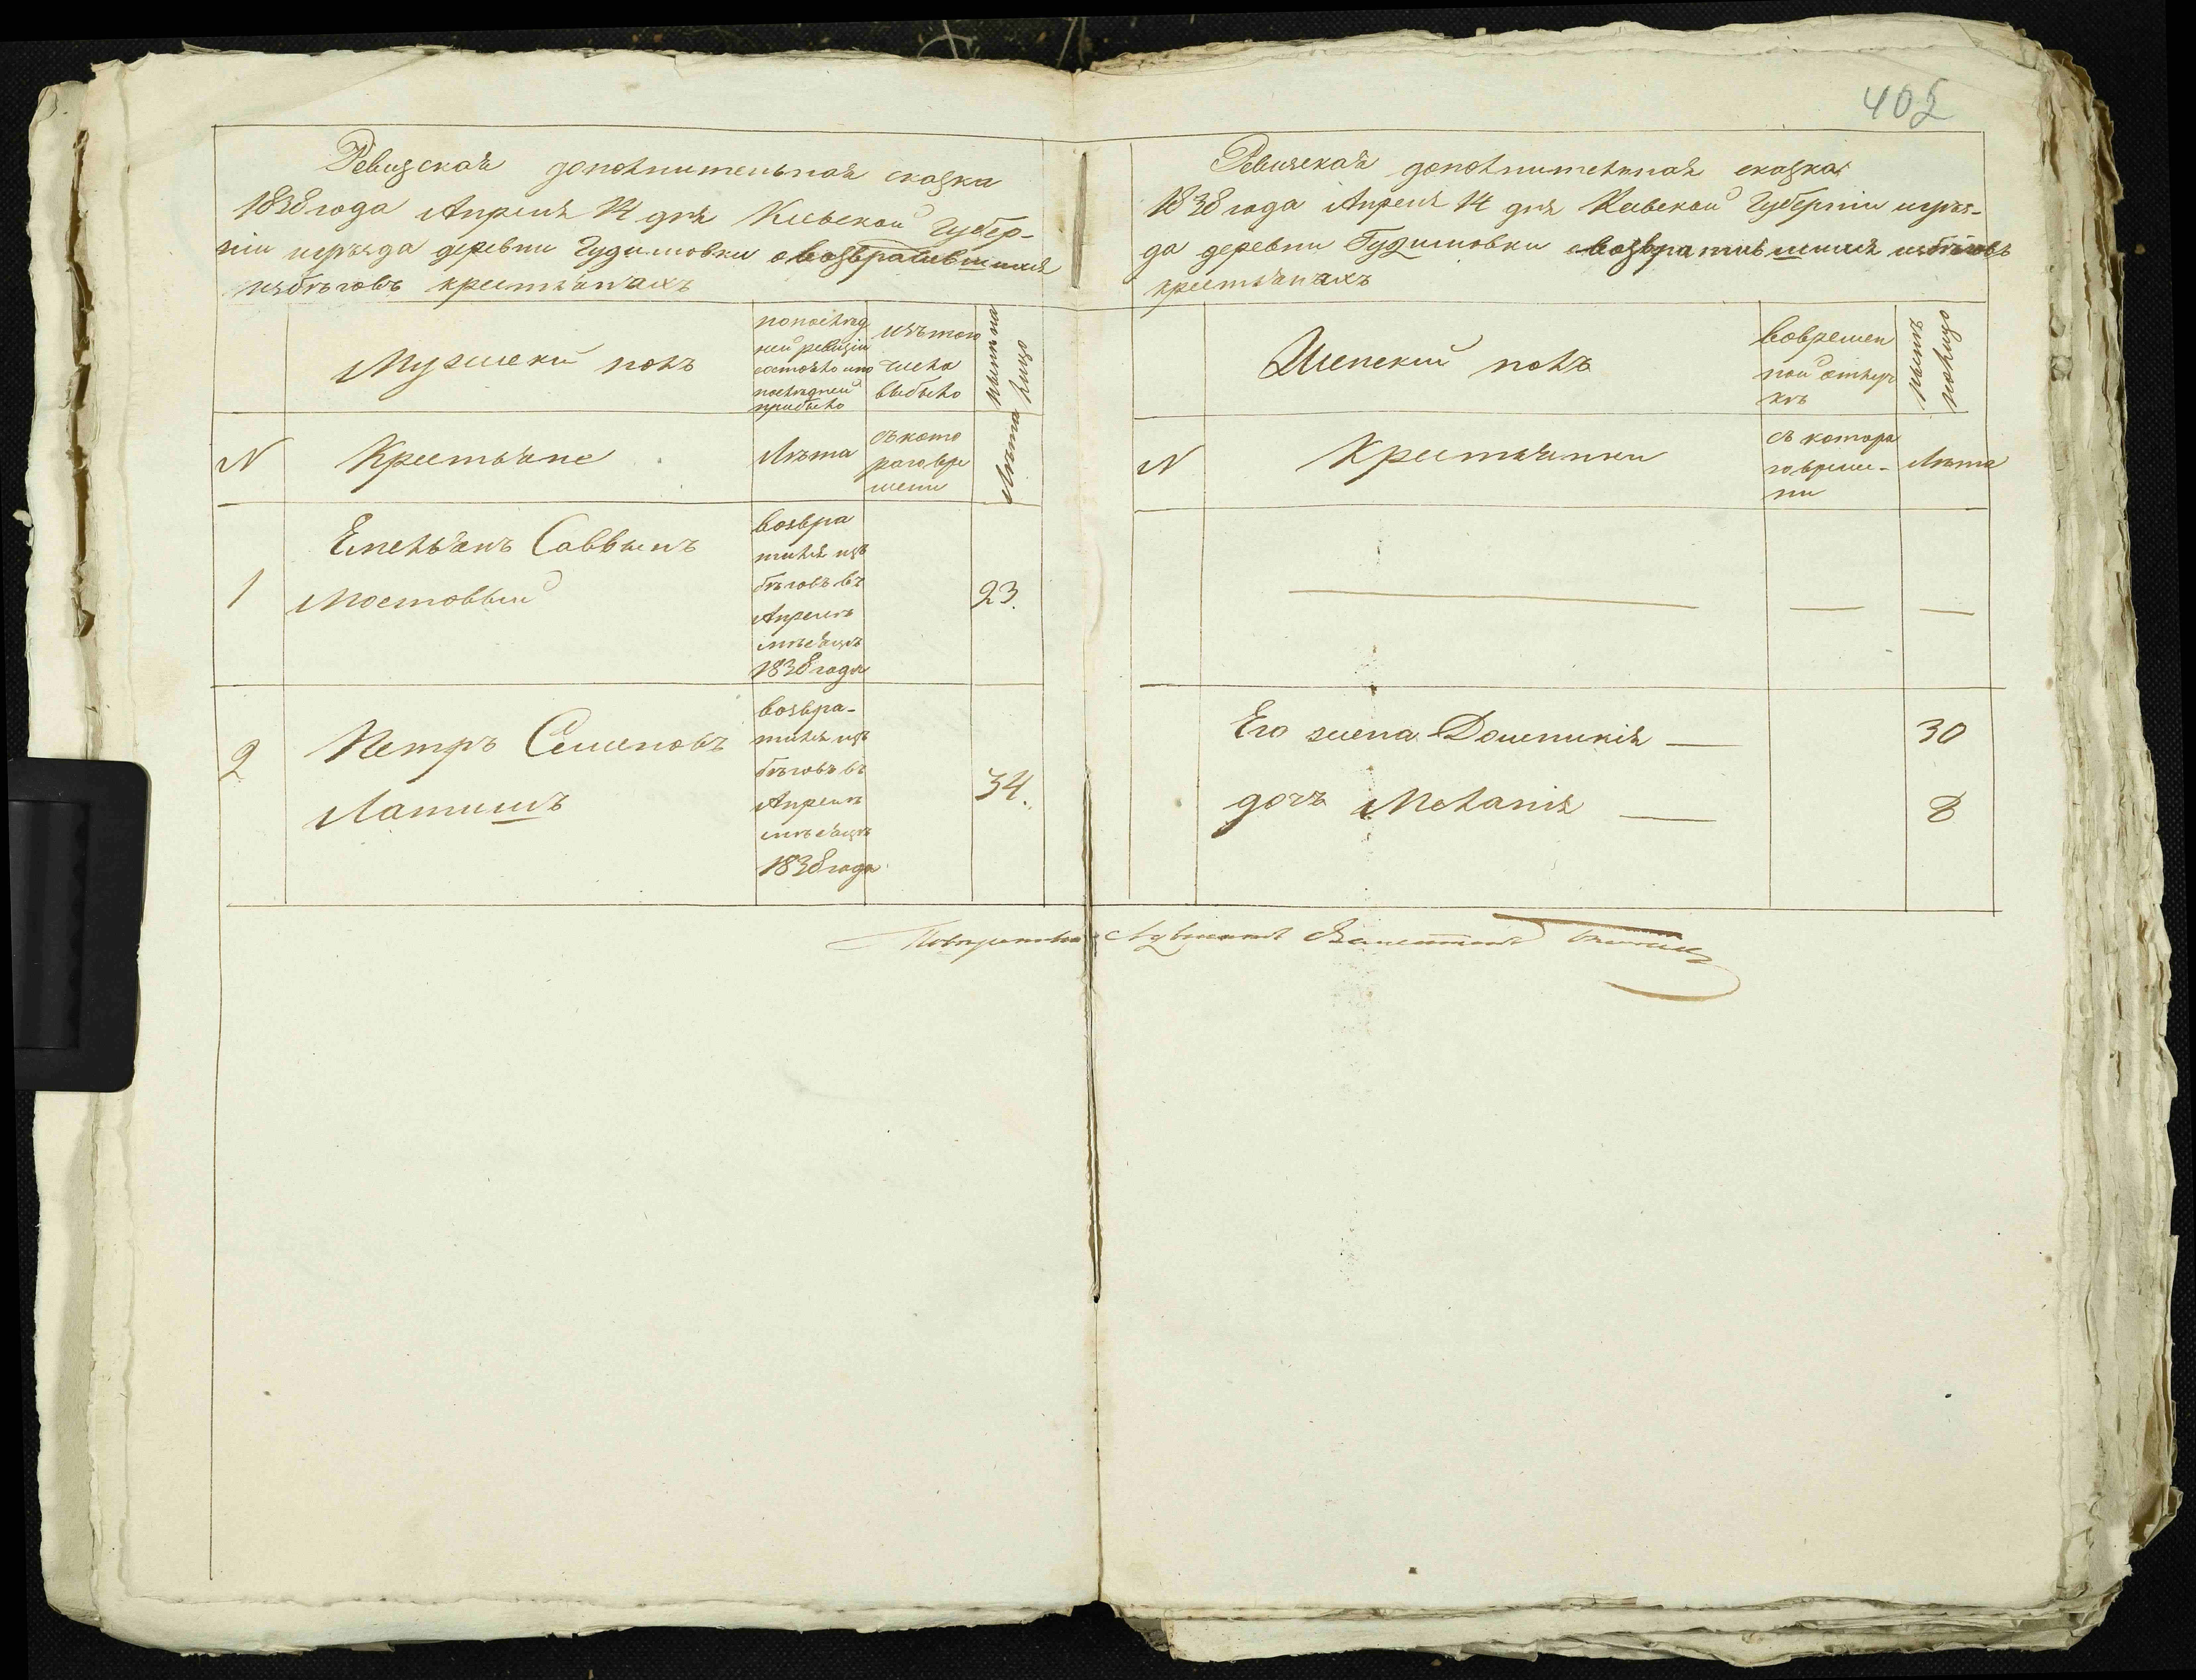 402
Ревизская дополнительная сказка
1838 года Апреля 14 дня Киевской Губер-
ніи иуѣзда деревни Гудимовки овозвратившихся
избѣговъ крестьянахъ
Мужеский полъ
попослѣд
ней ревизіи
состояло ипо
послѣдней
прибыло
изътого
числа
выбыло
нынѣ на
лицо
N
Крестьяне
Лѣта
съкото
раго вре
мени
Лѣта
1
Емельянъ Саввинъ
Мостовый
возвра
тился изъ
бѣговъ въ
Апрелѣ
мѣсяцѣ
1838 года
23.
2
Петръ Семеновъ
Латишъ
возвра-
тился изъ
бѣговъ въ
Апрелѣ
мѣсяцѣ
1838 года
34.
Ревизская дополнительная сказка
1838 года Апреля 14 дня Киевской Губерніи иуѣз-
да деревни Гудимовки овозвратившихся избѣговъ
крестьянахъ
Женский полъ
вовремен
ной отлуч
кѣ
нынѣ
налицо
N
Крестьянки
съ котора
го време-
ни
Лѣта
Его жена Доменикія
30
дочь Меланія
8